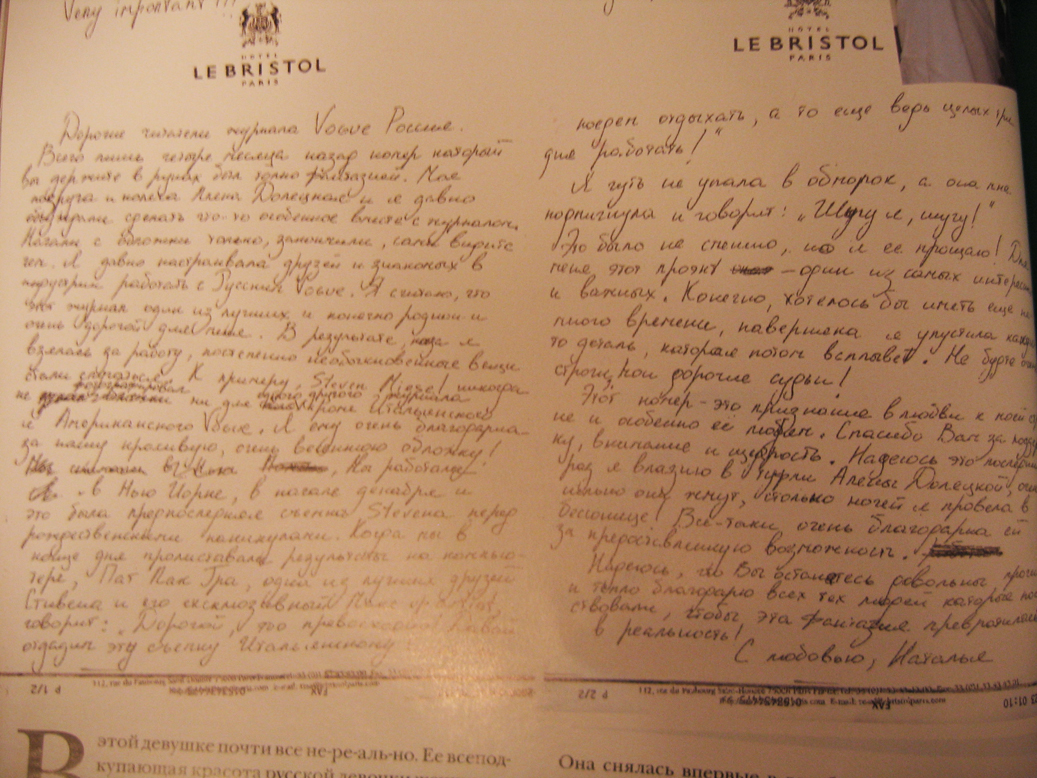 Very important !!!
HOTEL
LE BRISTOL
PARIS
Дорогие читатели журнала Vogue Россия.
Всего лишь четыре месяца назад номер который
вы держите в руках был только фантазией. Моя
подруга и колега Алена Долецкая и я давно
сделать что-то особенное вместе с журналом.
Начали с обложки только, закончили, сами видите
чем. Я давно настраивала друзей и знакомых в
индустрии работать с Русским Vogue. Я считаю, что
журнал один из лучших и конечно родной и
очень дорогой для меня. В результате, когда я
взялась за работу, постепенно необыкновенные вещи
стали случаться. К примеру, Steven Miesel никогда
не фотографировал ни для одного другого журнала
кроме Итальянского
и Американского Vogue. Я ему очень благодарна
за нашу красивую, очень весеннюю обложку!
Мы работали
в Нью Йорке, в начале декабря и
это была предпоследняя съемка Stevena перед
рождественскими каникулами. Когда мы в
конце дня пролиставали результаты на компью-
тере, Пат Мак Гра, один из лучших друзей
Стивена и его эксклюзивный Make up artist,
говорит: "Дорогой, это превосходно! Давай
отдадим эту съемку Итальянскому
112, rue du Faubourg Saint-Honoré 75008 Paris France
P 1/2
FAX
HOTEL
LE BRISTOL
PARIS
поедем отдыхать, а то еще ведь целых три
дня работать!"
Я чуть не упала в обморок, а она мне
подмигнула и говорит: "Шучу я, шучу!"
Это было не смешно, но я ее прощаю! Для
меня, этот проэкт – один из самых интерес
и важных. Конечно, хотелось бы иметь еще не
много времени, наверняка я упустила какую
то деталь, которая потом всплывет. Не будте
строги, мои дорогие судьи!
Этот номер - это признание в любви к моей
не и особенно ее людям. Спасибо Вам за поддер
ку, внимание и щедрость. Надеюсь это последний
раз я влазию в туфли Алены Долецкой,
сколько они жмут, столько ночей я провела в
бессонице! Все-таки очень благодарна ей
за предоставленную возможность.
Надеюсь, что Вы останетесь довольны
и тепло благодарю всех тех людей которые
ствовали, чтобы эта фантазия превратилась
в реальность!
С любовью, Наталья
P 2/2
112, rue du Faubourg Saint-Honoré 75008 Paris France
FAX
01:10
В этой девушке почти все не-ре-аль-но. Ее всепод-
купающая красота русской девочки
Она снялась впервые в